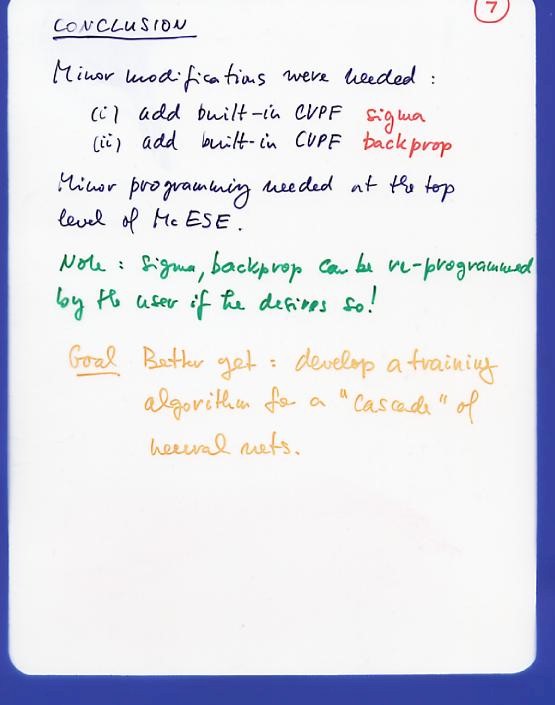 7
CONCLUSION
Minor modifications were needed :
(i) add built-in CVPF sigma
(ii) add built-in CVPF backprop
Minor programming needed at the top
level of McESE.
Note : sigma, backprop can be re-programmed
by the user if he desires so!
Goal Better yet : develop a training
algorithm for a "cascade" of
neural nets.